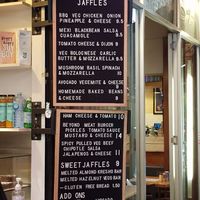 JAFFLES
BBQ VEG CHICKEN ONION
PINEAPPLE & CHEESE 9.5
MEXI BLACKBEAN SALSA
GUACAMOLE 9.5
TOMATO CHEESE & DIJON 9
VEG BOLOGNESE GARLIC
BUTTER & MOZZARELLA 9.5
MUSHROOM BASIL SPINACH
& MOZZARELLA 9.5
AVOCADO VEGEMITE & CHEESE 9
HOMEMADE BAKED BEANS
& CHEESE 9
HAM CHEESE & TOMATO 10
BEYOND MEAT BURGER
PICKLES TOMATO SAUCE
MUSTARD & CHEESE 14
SPICY PULLED VEG BEEF
CHIPOTLE SALSA
JALAPENOS & CHEESE 11
SWEETJAFFLES 9
MELTED ALMOND
MELTED HAZELNUT
GLUTEN FREE BREAD 1.50
ADD ONS